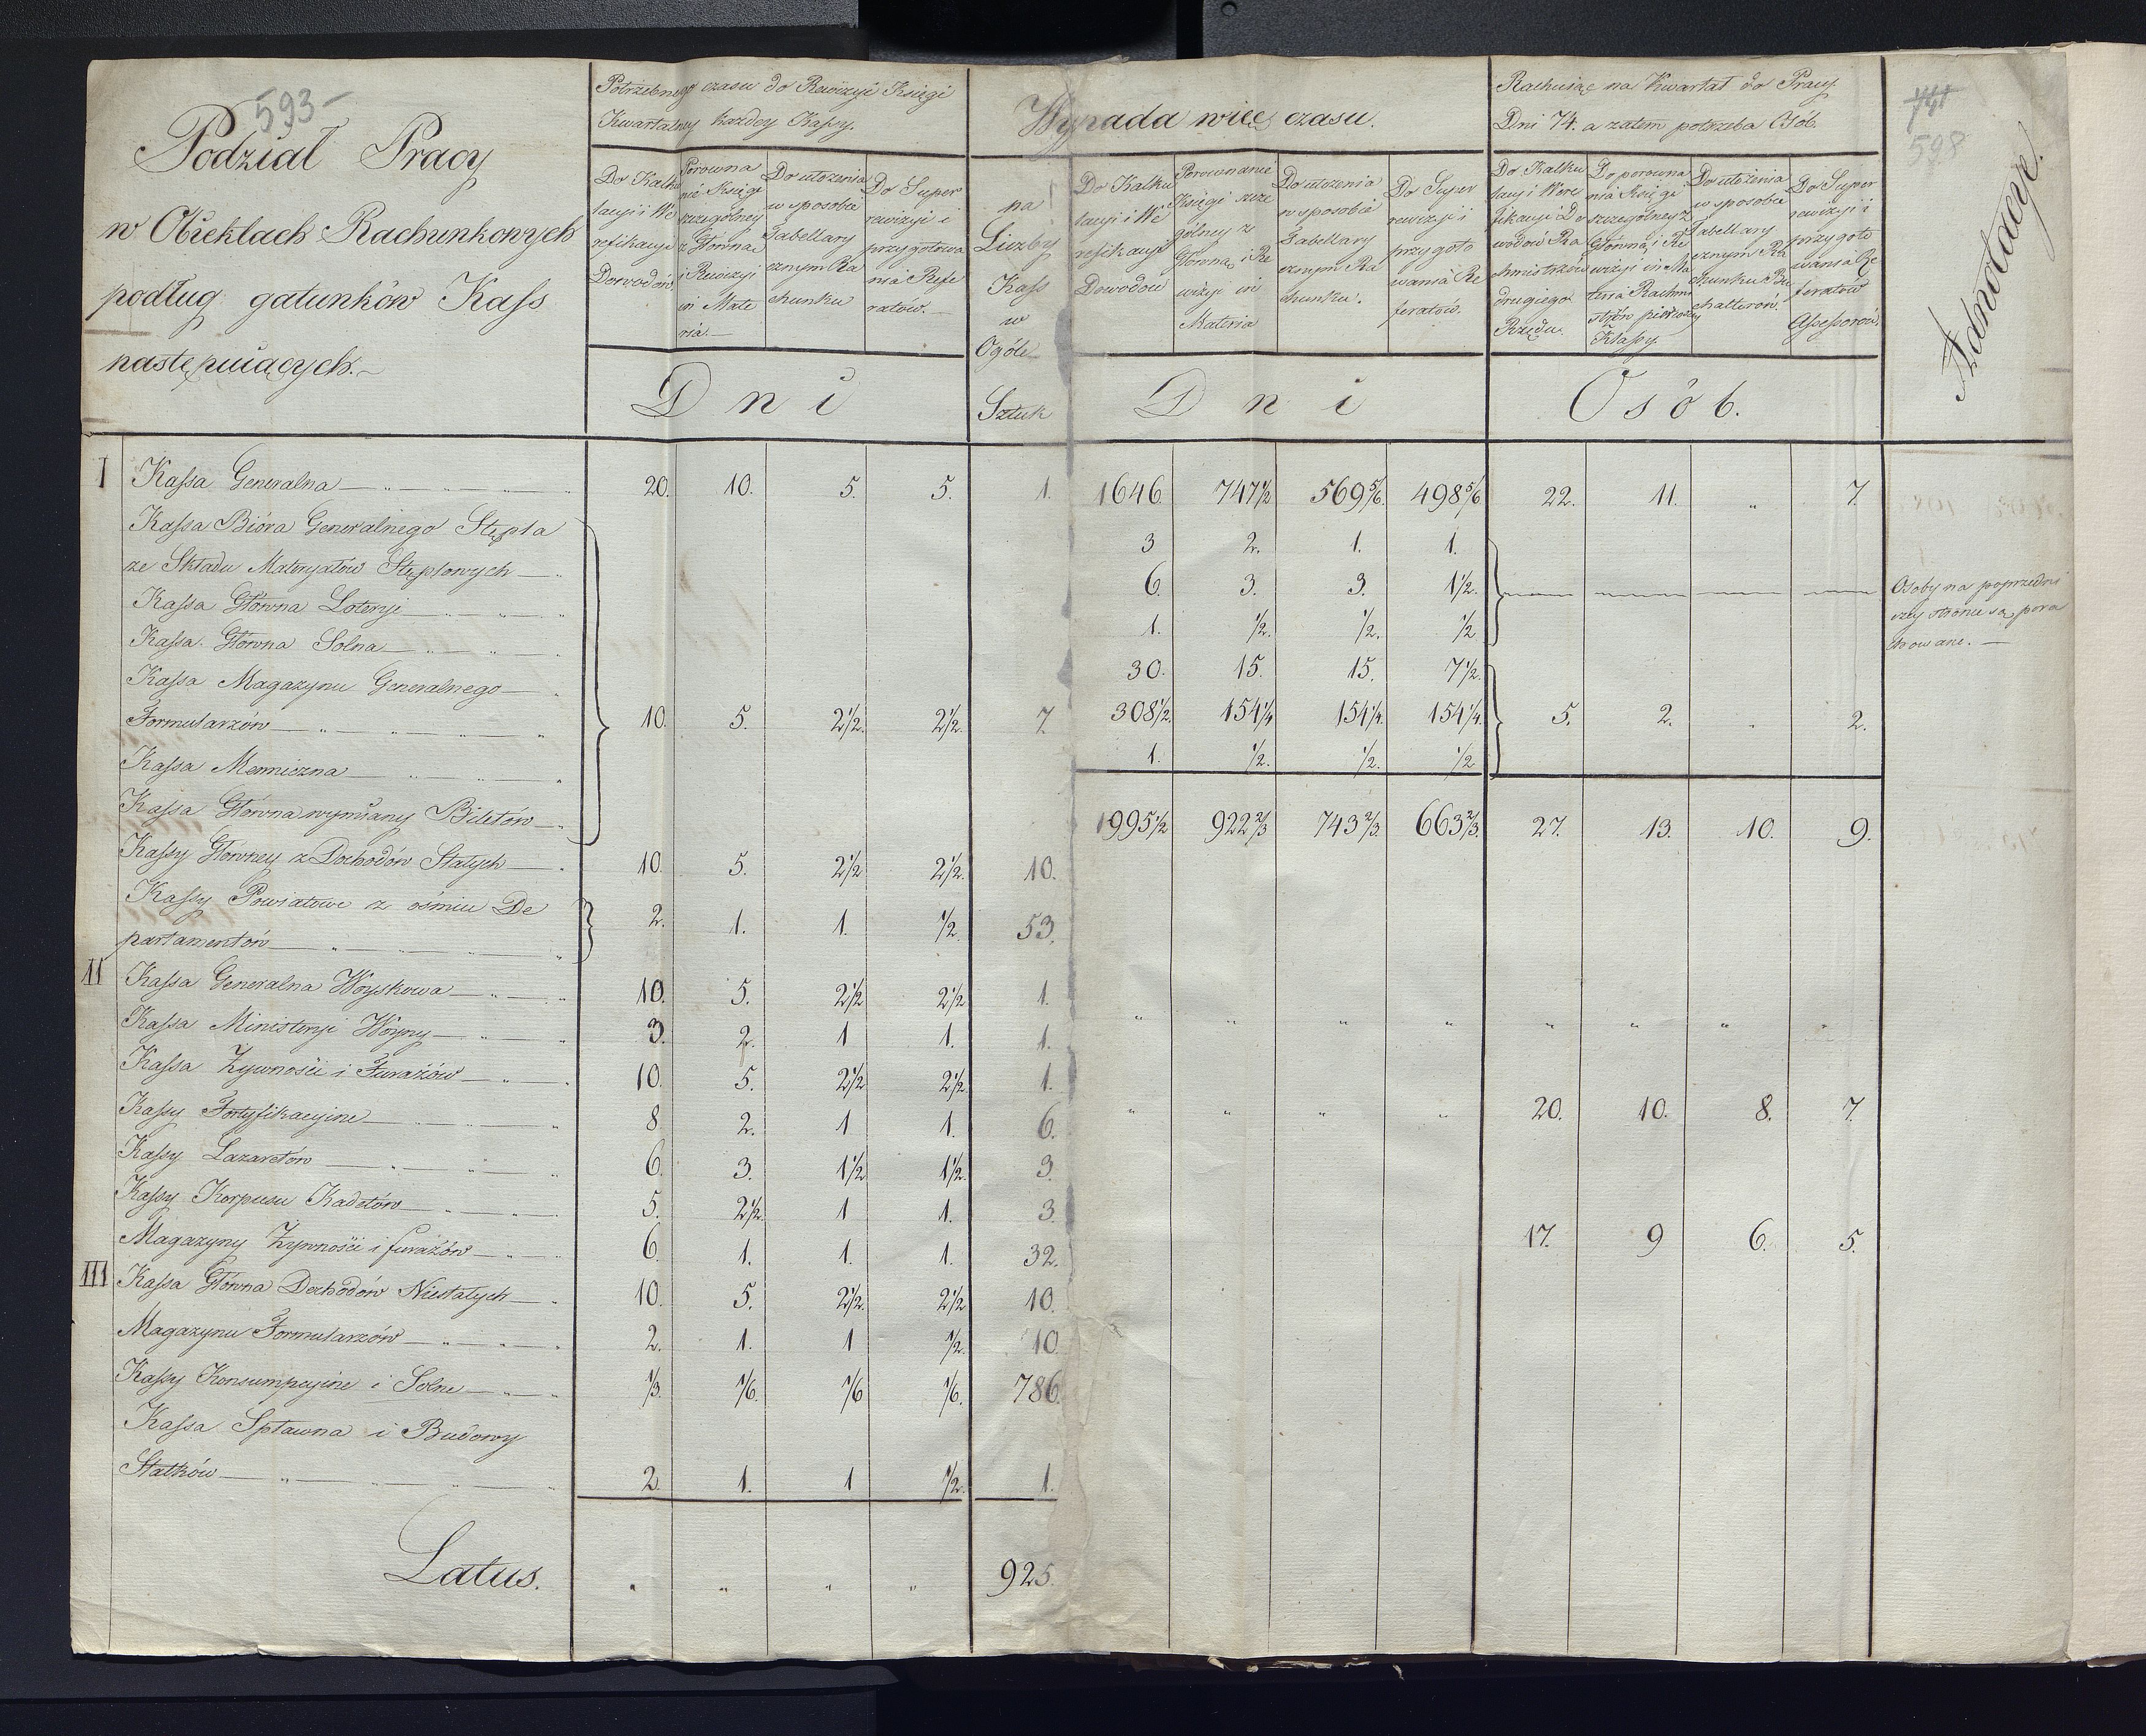 593
Podział Pracy
w Obrektach Rachunkowych
podług gatunków Kass
następuiących.
Potrzebnego czasu do Rewizyi Księgi
Kwartalney każdey Kassy.
Do Kalku
lacyi i We
refikacyi
Dowodów
Porowna
nie Księgi
szczególney
z Główną
i Rewizyi
in Mate
ria.
Do ułożenia
w sposobie
Tabellary
cznym Ra
chunku
Do Super
rewizyi i
przygotowa
nia Refe
ratów.
Dni
na
Liczby
Kass
w
Ogóle
Sztuk
Wypada więc czasu.
Do Kalku
lacyi i We
refikacyi
Dowodów
Porownanie
Księgi szcze
gólney z
Główną i Re
wizyi in
Materia
Do ułożenia
w sposobie
Tabellary
cznym Ra
chunku.
Do Super
rewizyi i
przygoto
wania Re
feratów.
Dni
Rachuiąc na Kwartał do Pracy
Dni 74. a zatem potrzeba Osób.
Do Kalku
lacyi i Were
fikacyi Do
wodów Ra
chmistrzów
drugiego
Rzędu.
Do porowna
nia Księgi
szczególney z
Główną i Re
wizyi in Ma
teria Rachmi
strzów pierwszey
Klassy.
Do ułożenia
w sposobie
Tabellary
cznym Ra
chunku Bu
chalterów.
Do Super
rewizyi i
przygoto
wania Re
feratów
Assessorów.
Osób.
741
598
Adnotacye.
I Kassa Generalna 20. 10. 5. 5. 1. 1646 747 1/2 569 5/6. 498 5/6 22. 11. „ 7.
Kassa Bióra Generalnego Stępla 3 2. 1. 1.
ze Składu Materyałów Stęplowych 6. 3. 3. 1 1/2.
Osoby na poprzedni
czey stronie są pora
chowane.
Kassa Główna Loteryi 1. 1/2. 1/2. 1/2
Kassa Główna Solna 30. 15. 15. 7 1/2.
Kassa Magazynu Generalnego
Formularzów 10. 5. 2 1/2. 2 1/2. 7 308 1/2. 154 1/4 154 1/4. 154 1/4. 5. 2. „ 2.
Kassa Menniczna 1. 1/2. 1/2. 1/2
Kassa Główna wymiany Biletów 1995 1/2 922 2/3 743 2/3. 663 2/3. 27. 13. 10. 9.
Kassy Główney z Dochodów Stałych 10. 5. 2 1/2 2 1/2. 10.
Kassy Powiatowe z ośmiu De
partamentów 2. 1. 1. 1/2. 53.
II Kassa Generalna Woyskowa 10. 5. 2 1/2 2 1/2. 1.
Kassa Ministeryi Woyny 3. 2. 1 1. 1. „ „ „ „ „ „ „ „
Kassa Żywności i Furażów 10. 5. 2 1/2 2 1/2. 1.
Kassy Fortyfikacyine 8 2. 1 1. 6. „ „ „ „ 20. 10. 8. 7.
Kassy Lazaretów 6. 3. 1 1/2 1 1/2. 3.
Kassy Korpusu Kadetów 5. 2 1/2. 1 1. 3
Magazyny Żywności i furażów 6. 1. 1. 1. 32. 17. 9 6. 5.
III Kassa Główna Dochodów Niestałych 10. 5. 2 1/2. 2 1/2 10.
Magazynu Formularzów 2. 1. 1 1/2. 10
Kassy Konsumpcyine i Solne 1/3. 1/6. 1/6 1/6. 786.
Kassa Spławna i Budowy
Statków 2. 1. 1 1/2. 1.
Latus. „ „ „ „ 925.